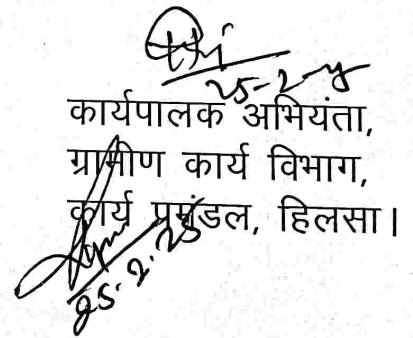 कार्यपालक अभियंता,
ग्रामीण कार्य विभाग,
कार्य प्रमंडल, हिलसा।
25.2.25